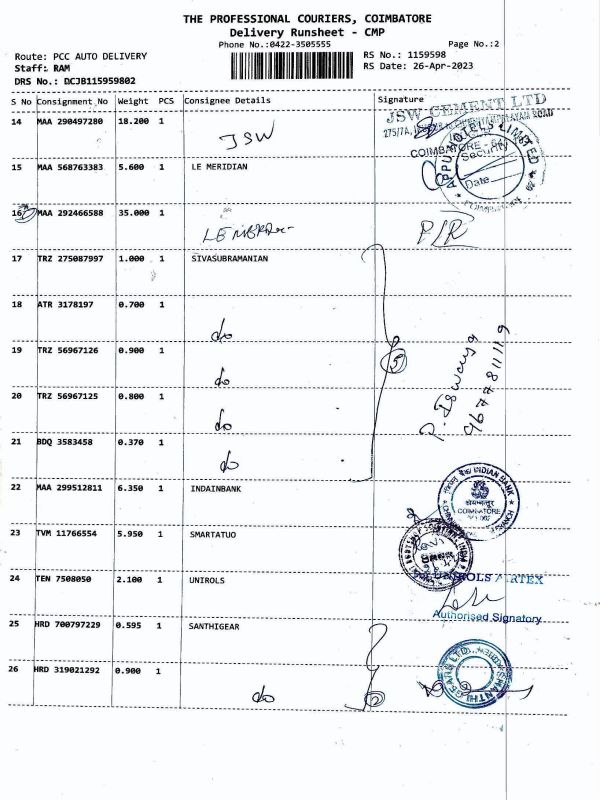 THE PROFESSIONAL COURIERS, COIMBATORE
Delivery Runsheet - CMP
Phone No.:0422-3505555
Page No.:2
Route: PCC AUTO DELIVERY
RS No.: 1159598
Staff: RAM
RS Date: 26-Apr-2023
DRS No.: DCJB115959802
S No Consignment No Weight PCS Consignee Details Signature
14 MAA 290497280 18.200 1
JSW
JSW CEMENT LTD
COIMBATORE - 641
15 MAA 568763383 5.600 1 LE MERIDIAN
APPU HOTELS LIMITED
Security
Date
16 MAA 292466588 35.000 1
17 TRZ 275087997 1.000 1 SIVASUBRAMANIAN
18 ATR 3178197 0.700 1
do
19 TRZ 56967126 0.900 1
do
5
20 TRZ 56967125 0.800 1
do
21 BDQ 3583458 0.370 1
do
P. Iswarya
9677811119
22 MAA 299512811 6.350 1 INDAINBANK
INDIAN BANK
COIMBATORE
23 TVM 11766554 5.950 1 SMARTATUO
24 TEN 7508050 2.100 1 UNIROLS
UNIROLS AIRTEX
Authorised Signatory
25 HRD 700797229 0.595 1 SANTHIGEAR
26 HRD 319021292 0.900 1
do
2